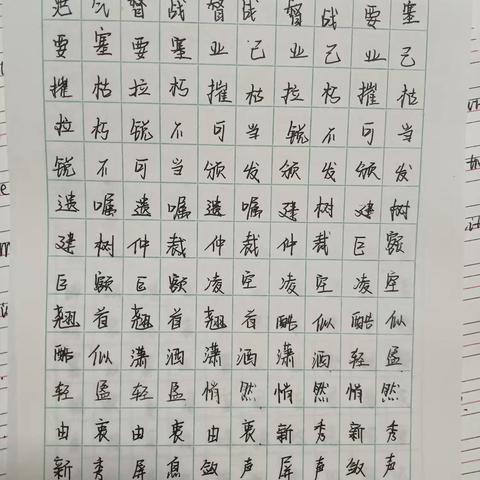 督战督战督战要塞
要塞要塞业已业已业已
摧枯拉朽摧枯拉朽摧枯
拉朽锐不可当锐不可当
锐不可当颁发颁发颁发
遗嘱遗嘱遗嘱建树建树
建树仲裁仲裁仲裁巨额
巨额巨额凌空凌空凌空
翘首翘首翘首酷似酷似
酷似潇洒潇洒潇洒轻盈
轻盈轻盈悄然悄然悄然
由衷由衷由衷新秀新秀
新秀屏息敛声屏声敛声